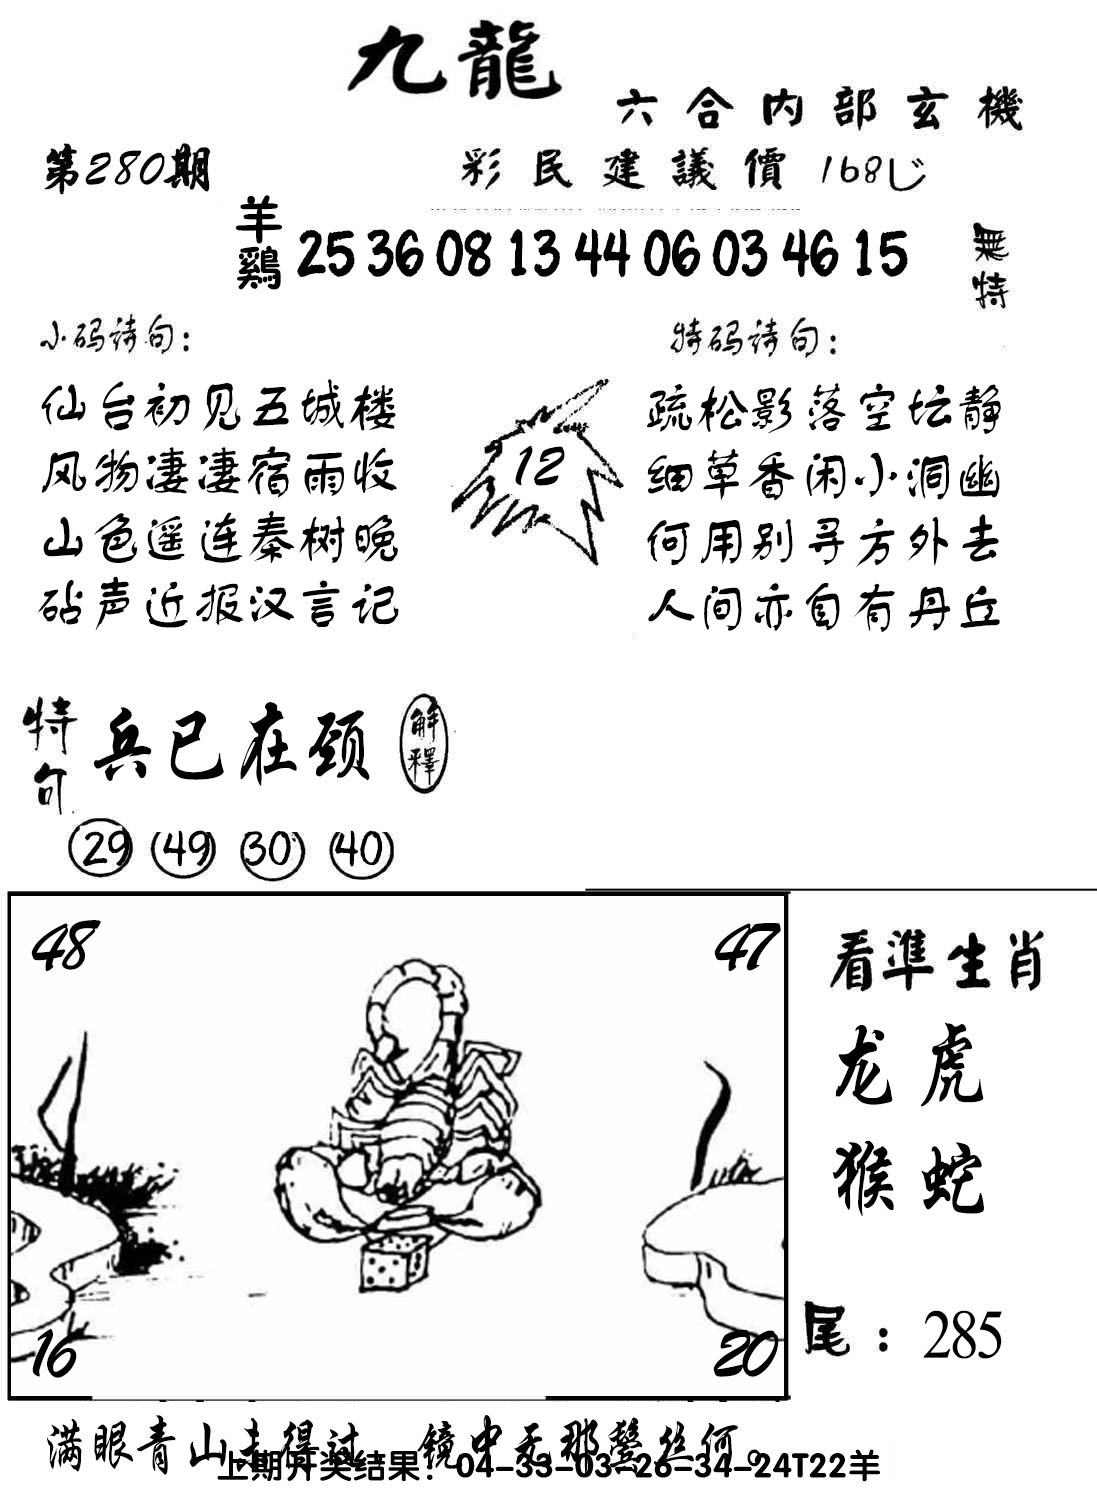 九龍
六合内部玄機
第280期
彩民建議價168
羊鷄
25 36 08 13 44 06 03 46 15
無特
小码诗句：
仙台初见五城楼
风物凄凄宿雨收
山色遥连秦树晚
砧声近报汉言记
12
特码诗句：
疏松影落空坛静
细草香闲小洞幽
何用别寻方外去
人间亦自有丹丘
特句
兵已在颈
解釋
29 49 30 40
48
47
16
20
看準生肖
龙虎
猴蛇
尾：285
满眼青山未得过 镜中无那鬓丝何。
上期开奖结果：04-33-03-26-34-24T22羊